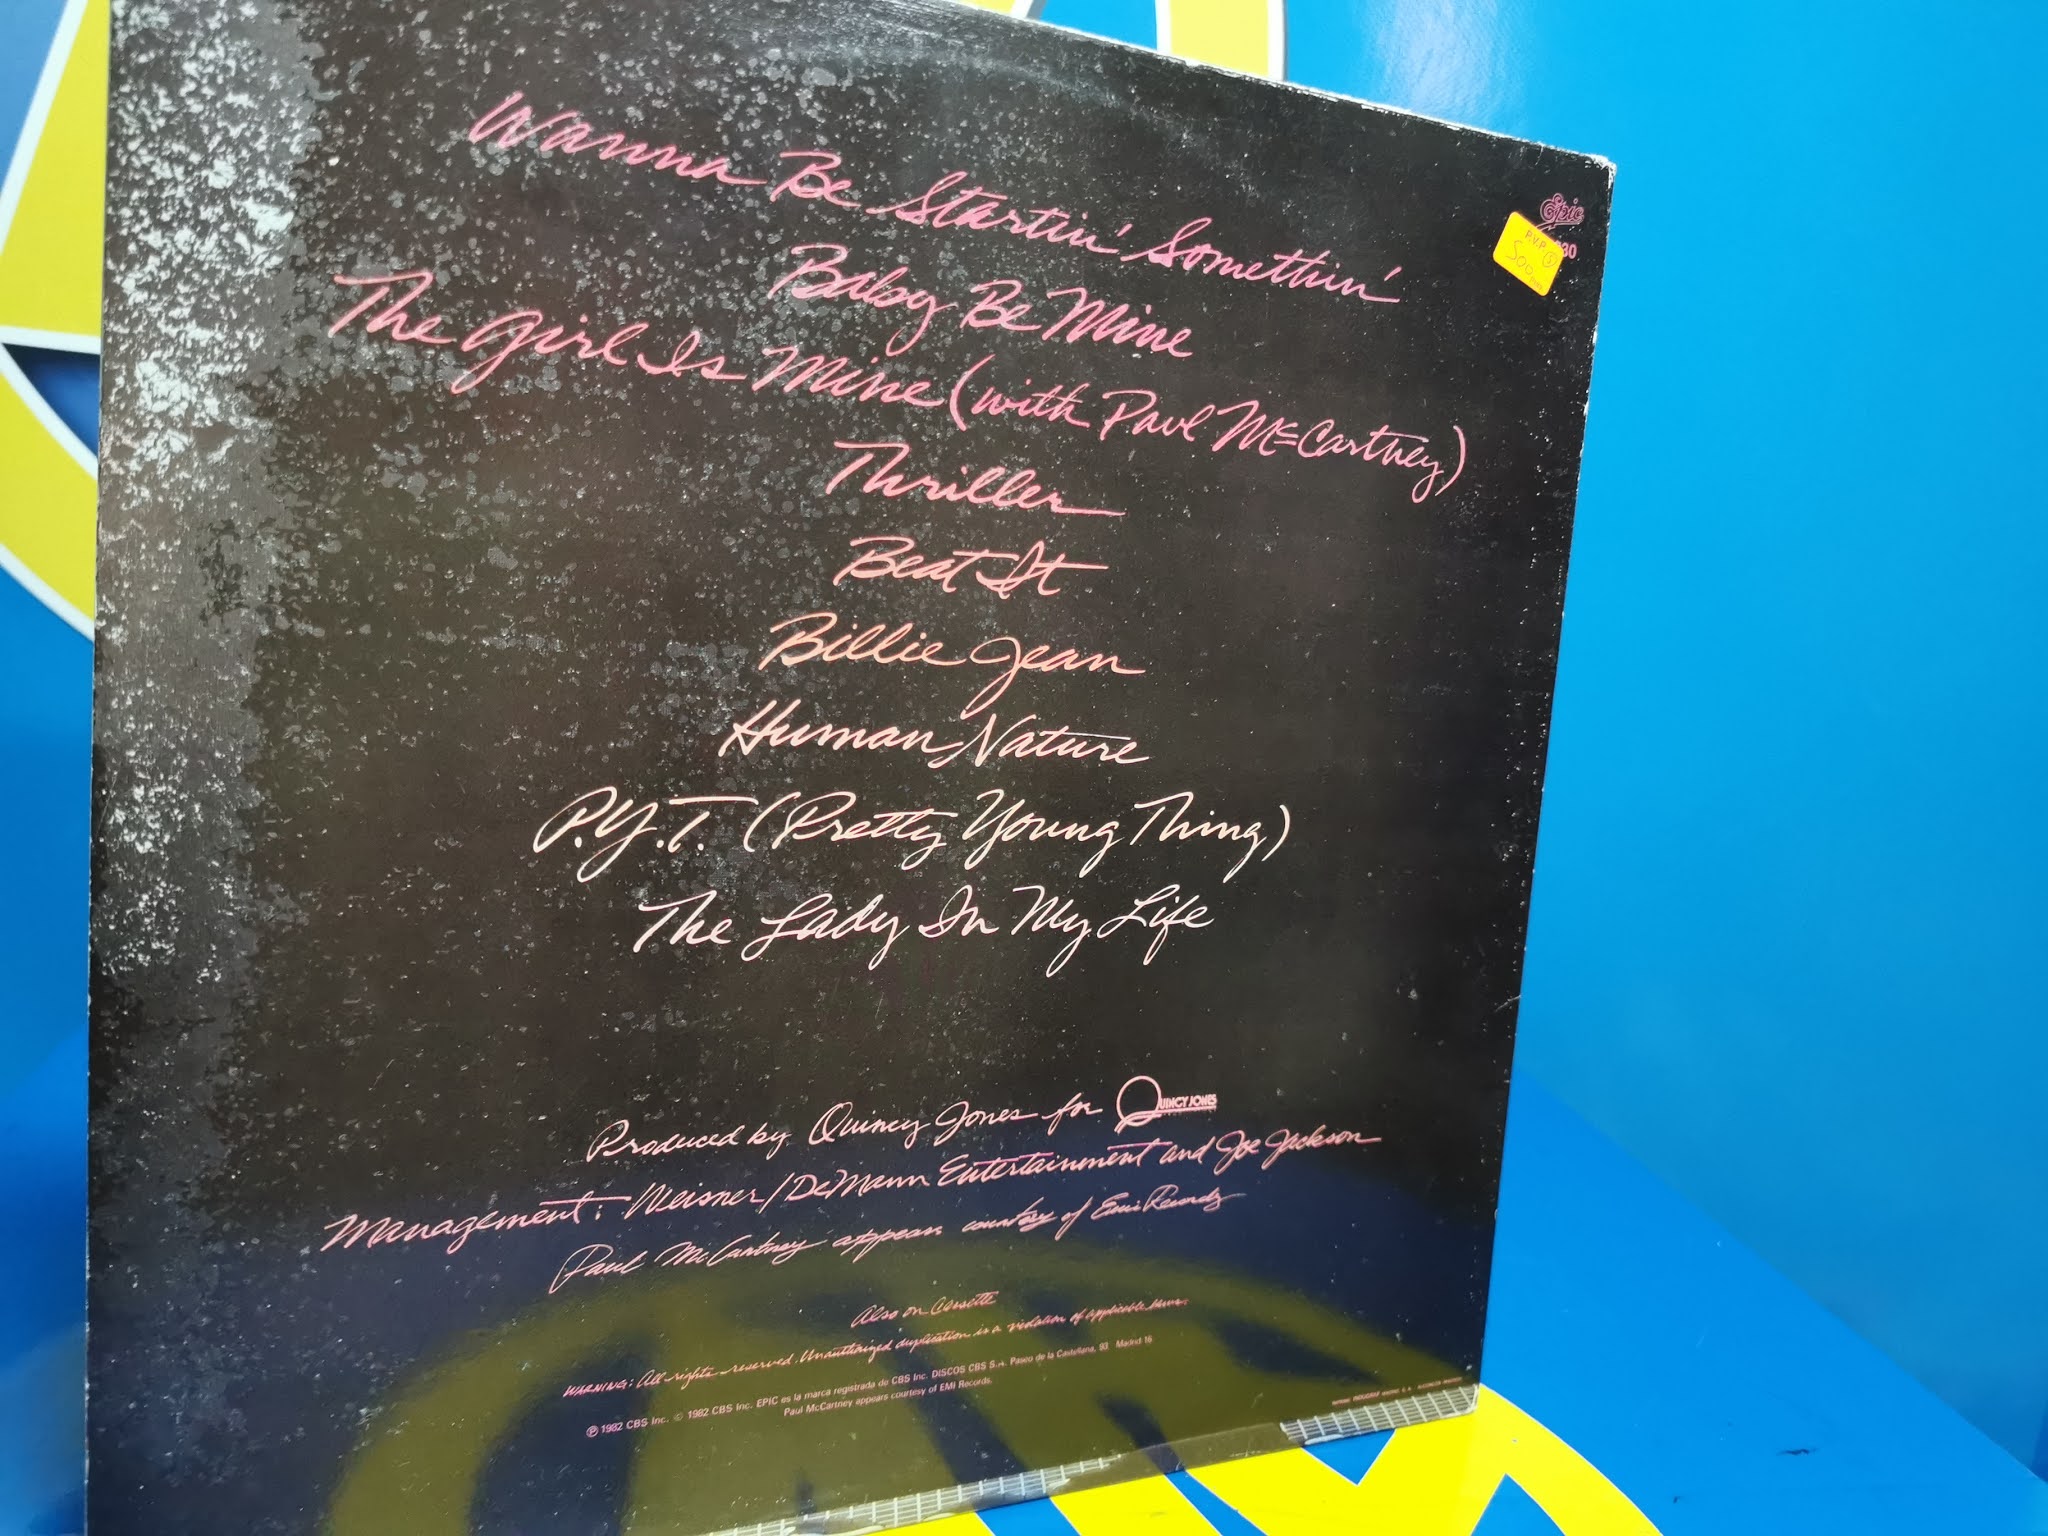 Wanna Be Startin' Somethin'
Epic
30
P.V.P. 5
500
Baby Be Mine
The Girl Is Mine (with Paul McCartney)
Thriller
Beat It
Billie Jean
Human Nature
P.Y.T. (Pretty Young Thing)
The Lady In My Life
Produced by Quincy Jones for QUINCY JONES
Management: Weisner/DeMann Entertainment and Joe Jackson
Paul McCartney appears courtesy of Emi Records
Also on Cassette
WARNING: All rights reserved. Unauthorized duplication is a violation of applicable laws.
℗ 1982 CBS Inc. © 1982 CBS Inc. EPIC es la marca registrada de CBS Inc. DISCOS CBS S.A. Paseo de la Castellana, 93 Madrid 16
Paul McCartney appears courtesy of EMI Records.